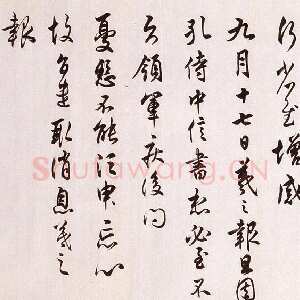 何省慰增感
九月十七日羲之報且因
孔侍中信書想必至不
知領軍疾後問
憂懸不能須臾忘心
故旨遣取消息羲之
報
Shufawang.CN